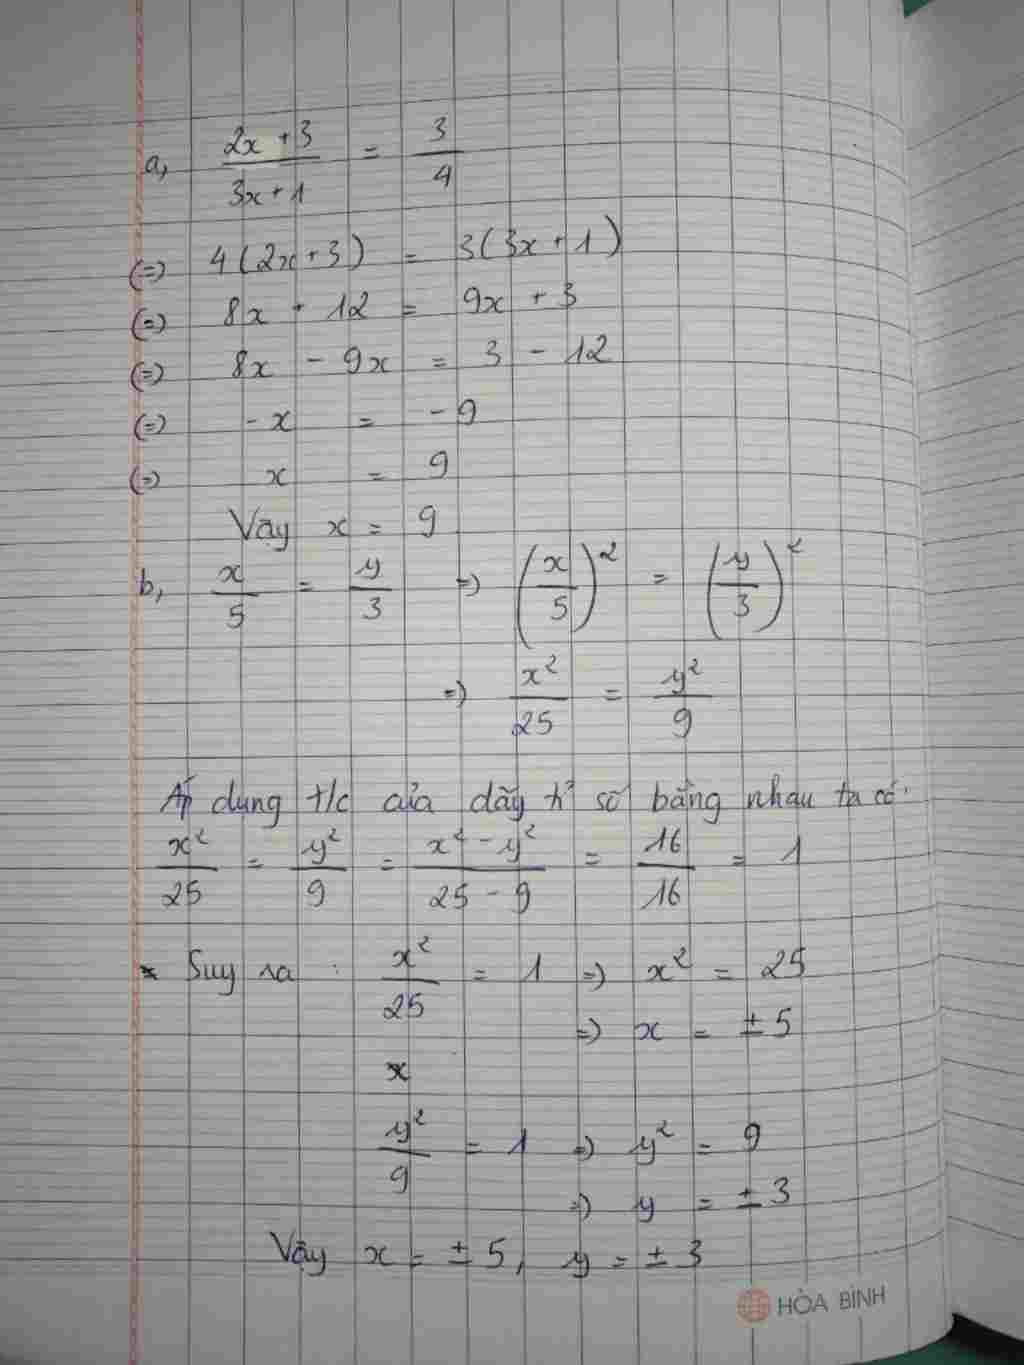 a, (2x + 3)/(3x + 1) = 3/4
(=) 4(2x + 3) = 3(3x + 1)
(=) 8x + 12 = 9x + 3
(=) 8x - 9x = 3 - 12
(=) -x = -9
(=) x = 9
Vậy x = 9
b, x/5 = y/3 =) (x/5)² = (y/3)²
=) x²/25 = y²/9
Áp dụng t/c của dãy tỉ số bằng nhau ta có:
x²/25 = y²/9 = (x² - y²)/(25 - 9) = 16/16 = 1
Suy ra : x²/25 = 1 =) x² = 25
=) x = ± 5
x
y²/9 = 1 =) y² = 9
=) y = ± 3
Vậy x = ± 5, y = ± 3
HÒA BÌNH